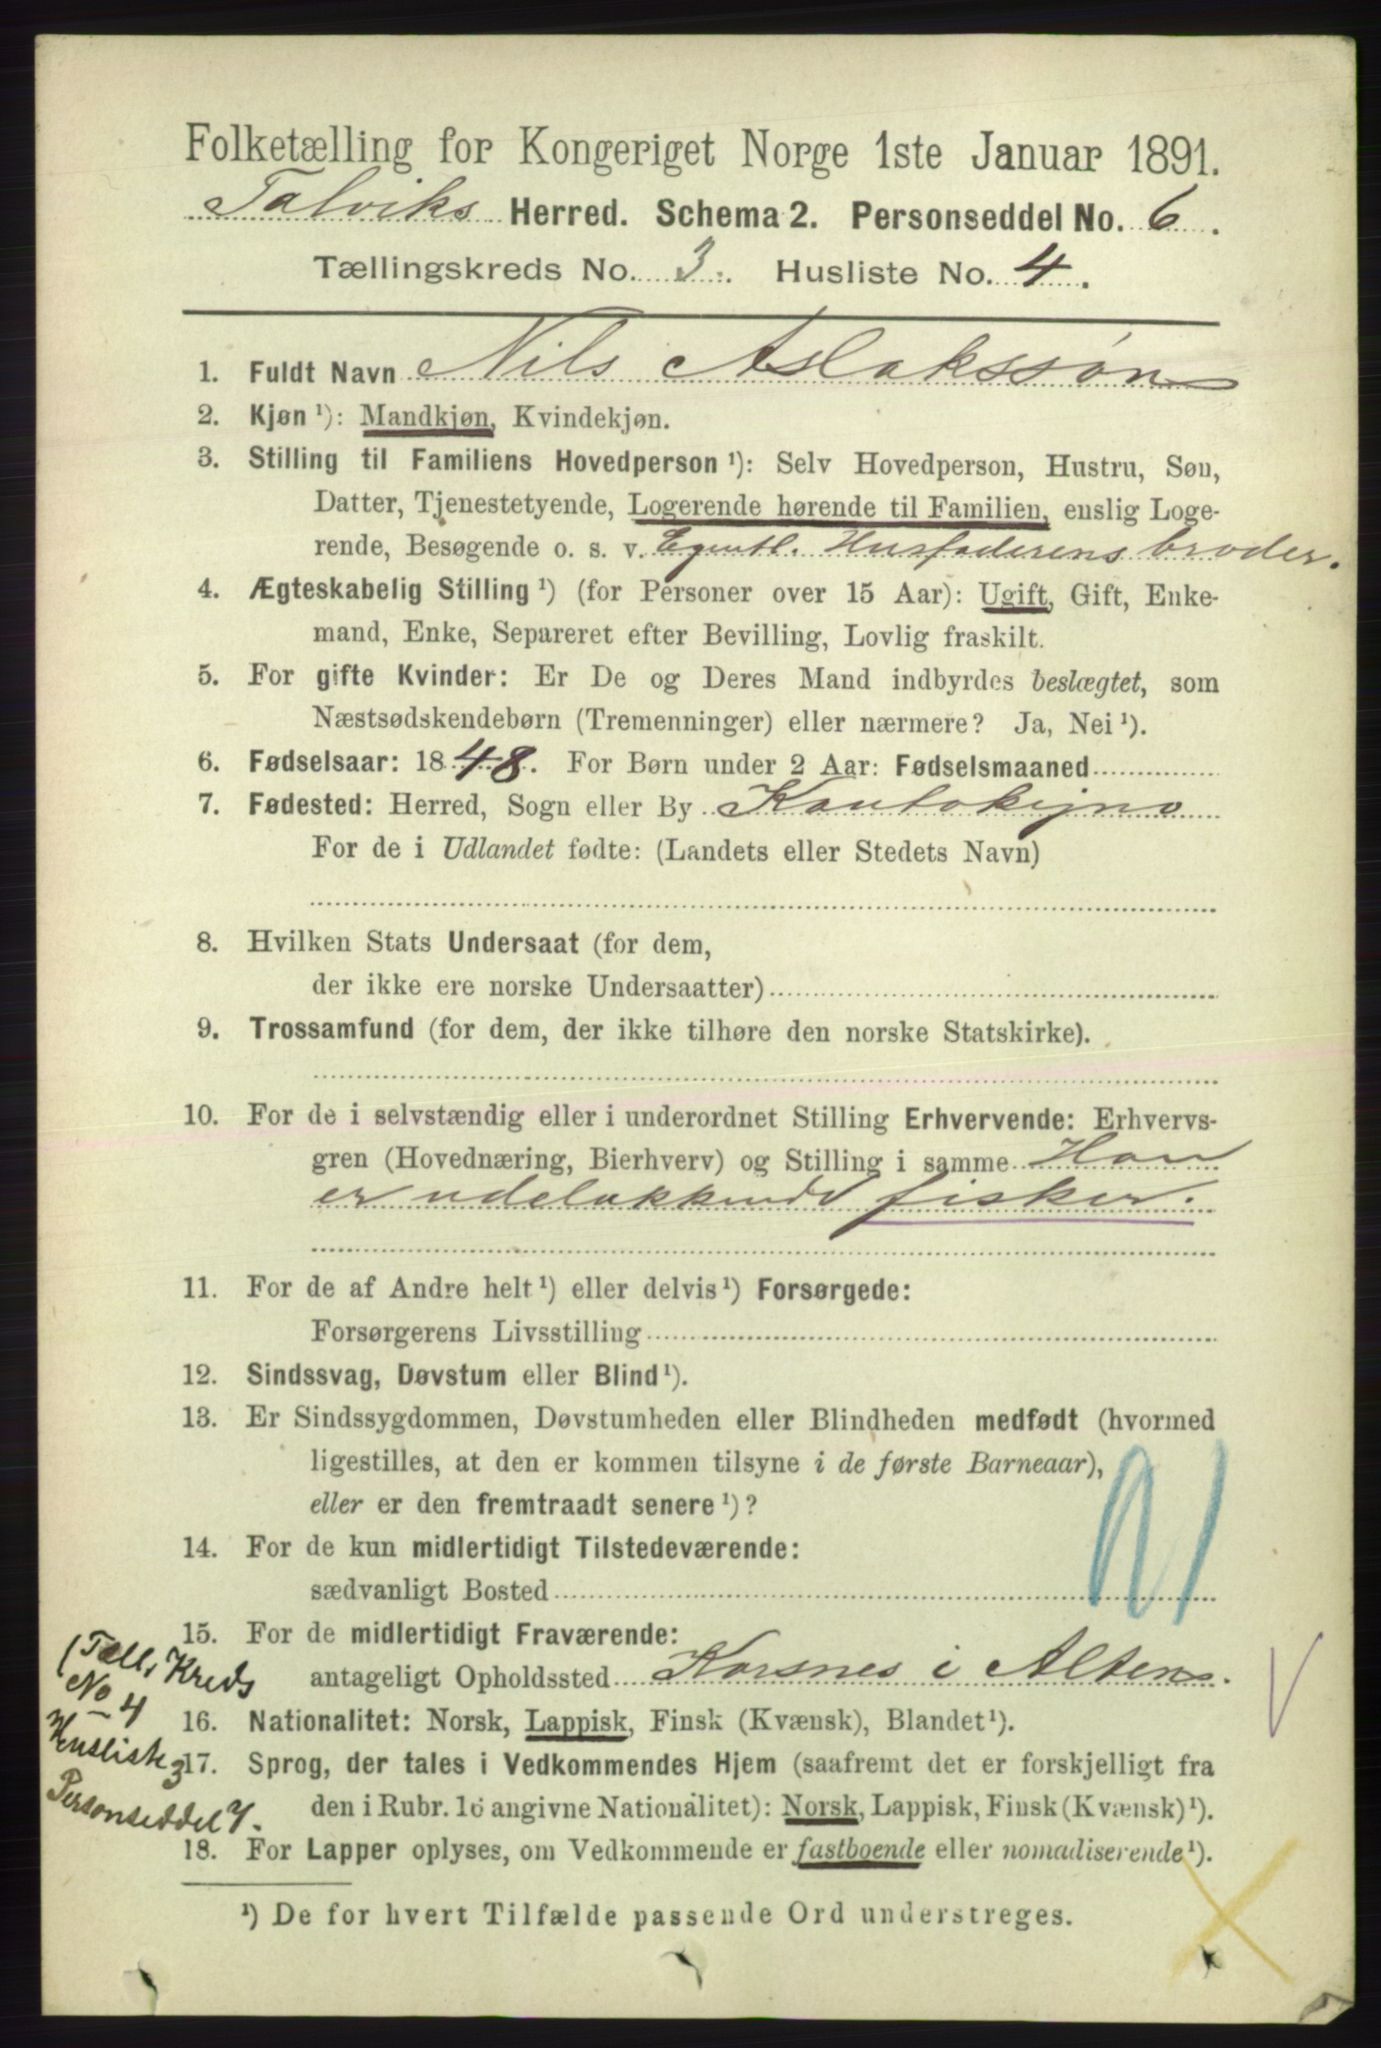 Folketælling for Kongeriget Norge 1ste Januar 1891.
Talviks Herred. Schema 2. Personseddel No. 6.
Tællingskreds No. 3. Husliste No. 4.
1. Fuldt Navn Nils Aslakssøn
2. Kjøn ¹): Mandkjøn, Kvindekjøn.
3. Stilling til Familiens Hovedperson ¹): Selv Hovedperson, Hustru, Søn,
Datter, Tjenestetyende, Logerende hørende til Familien, enslig Loge-
rende, Besøgende o. s. v. Egentl. Husfaderens broder.
4. Ægteskabelig Stilling ¹) (for Personer over 15 Aar): Ugift, Gift, Enke-
mand, Enke, Separeret efter Bevilling, Lovlig fraskilt.
5. For gifte Kvinder: Er De og Deres Mand indbyrdes beslægtet, som
Næstsødskendebørn (Tremenninger) eller nærmere? Ja, Nei ¹).
6. Fødselsaar: 1848. For Børn under 2 Aar: Fødselsmaaned
7. Fødested: Herred, Sogn eller By Kautokejno
For de i Udlandet fødte: (Landets eller Stedets Navn)
8. Hvilken Stats Undersaat (for dem,
der ikke ere norske Undersaatter)
9. Trossamfund (for dem, der ikke tilhøre den norske Statskirke).
10. For de i selvstændig eller i underordnet Stilling Erhvervende: Erhvervs-
gren (Hovednæring, Bierhverv) og Stilling i samme Han
er udelukkende fisker.
11. For de af Andre helt ¹) eller delvis ¹) Forsørgede:
Forsørgerens Livsstilling
12. Sindssvag, Døvstum eller Blind ¹).
13. Er Sindssygdommen, Døvstumheden eller Blindheden medfødt (hvormed
ligestilles, at den er kommen tilsyne i de første Barneaar),
eller er den fremtraadt senere ¹)?
14. For de kun midlertidigt Tilstedeværende:
sædvanligt Bosted
15. For de midlertidigt Fraværende:
antageligt Opholdssted Korsnes i Alten.
(Tæll. Kreds
No 4
Husliste 3
Personseddel 7.
16. Nationalitet: Norsk, Lappisk, Finsk (Kvænsk), Blandet ¹).
17. Sprog, der tales i Vedkommendes Hjem (saafremt det er forskjelligt fra
den i Rubr. 16 angivne Nationalitet): Norsk, Lappisk, Finsk (Kvænsk) ¹).
18. For Lapper oplyses, om Vedkommende er fastboende eller nomadiserende ¹).
¹) De for hvert Tilfælde passende Ord understreges.